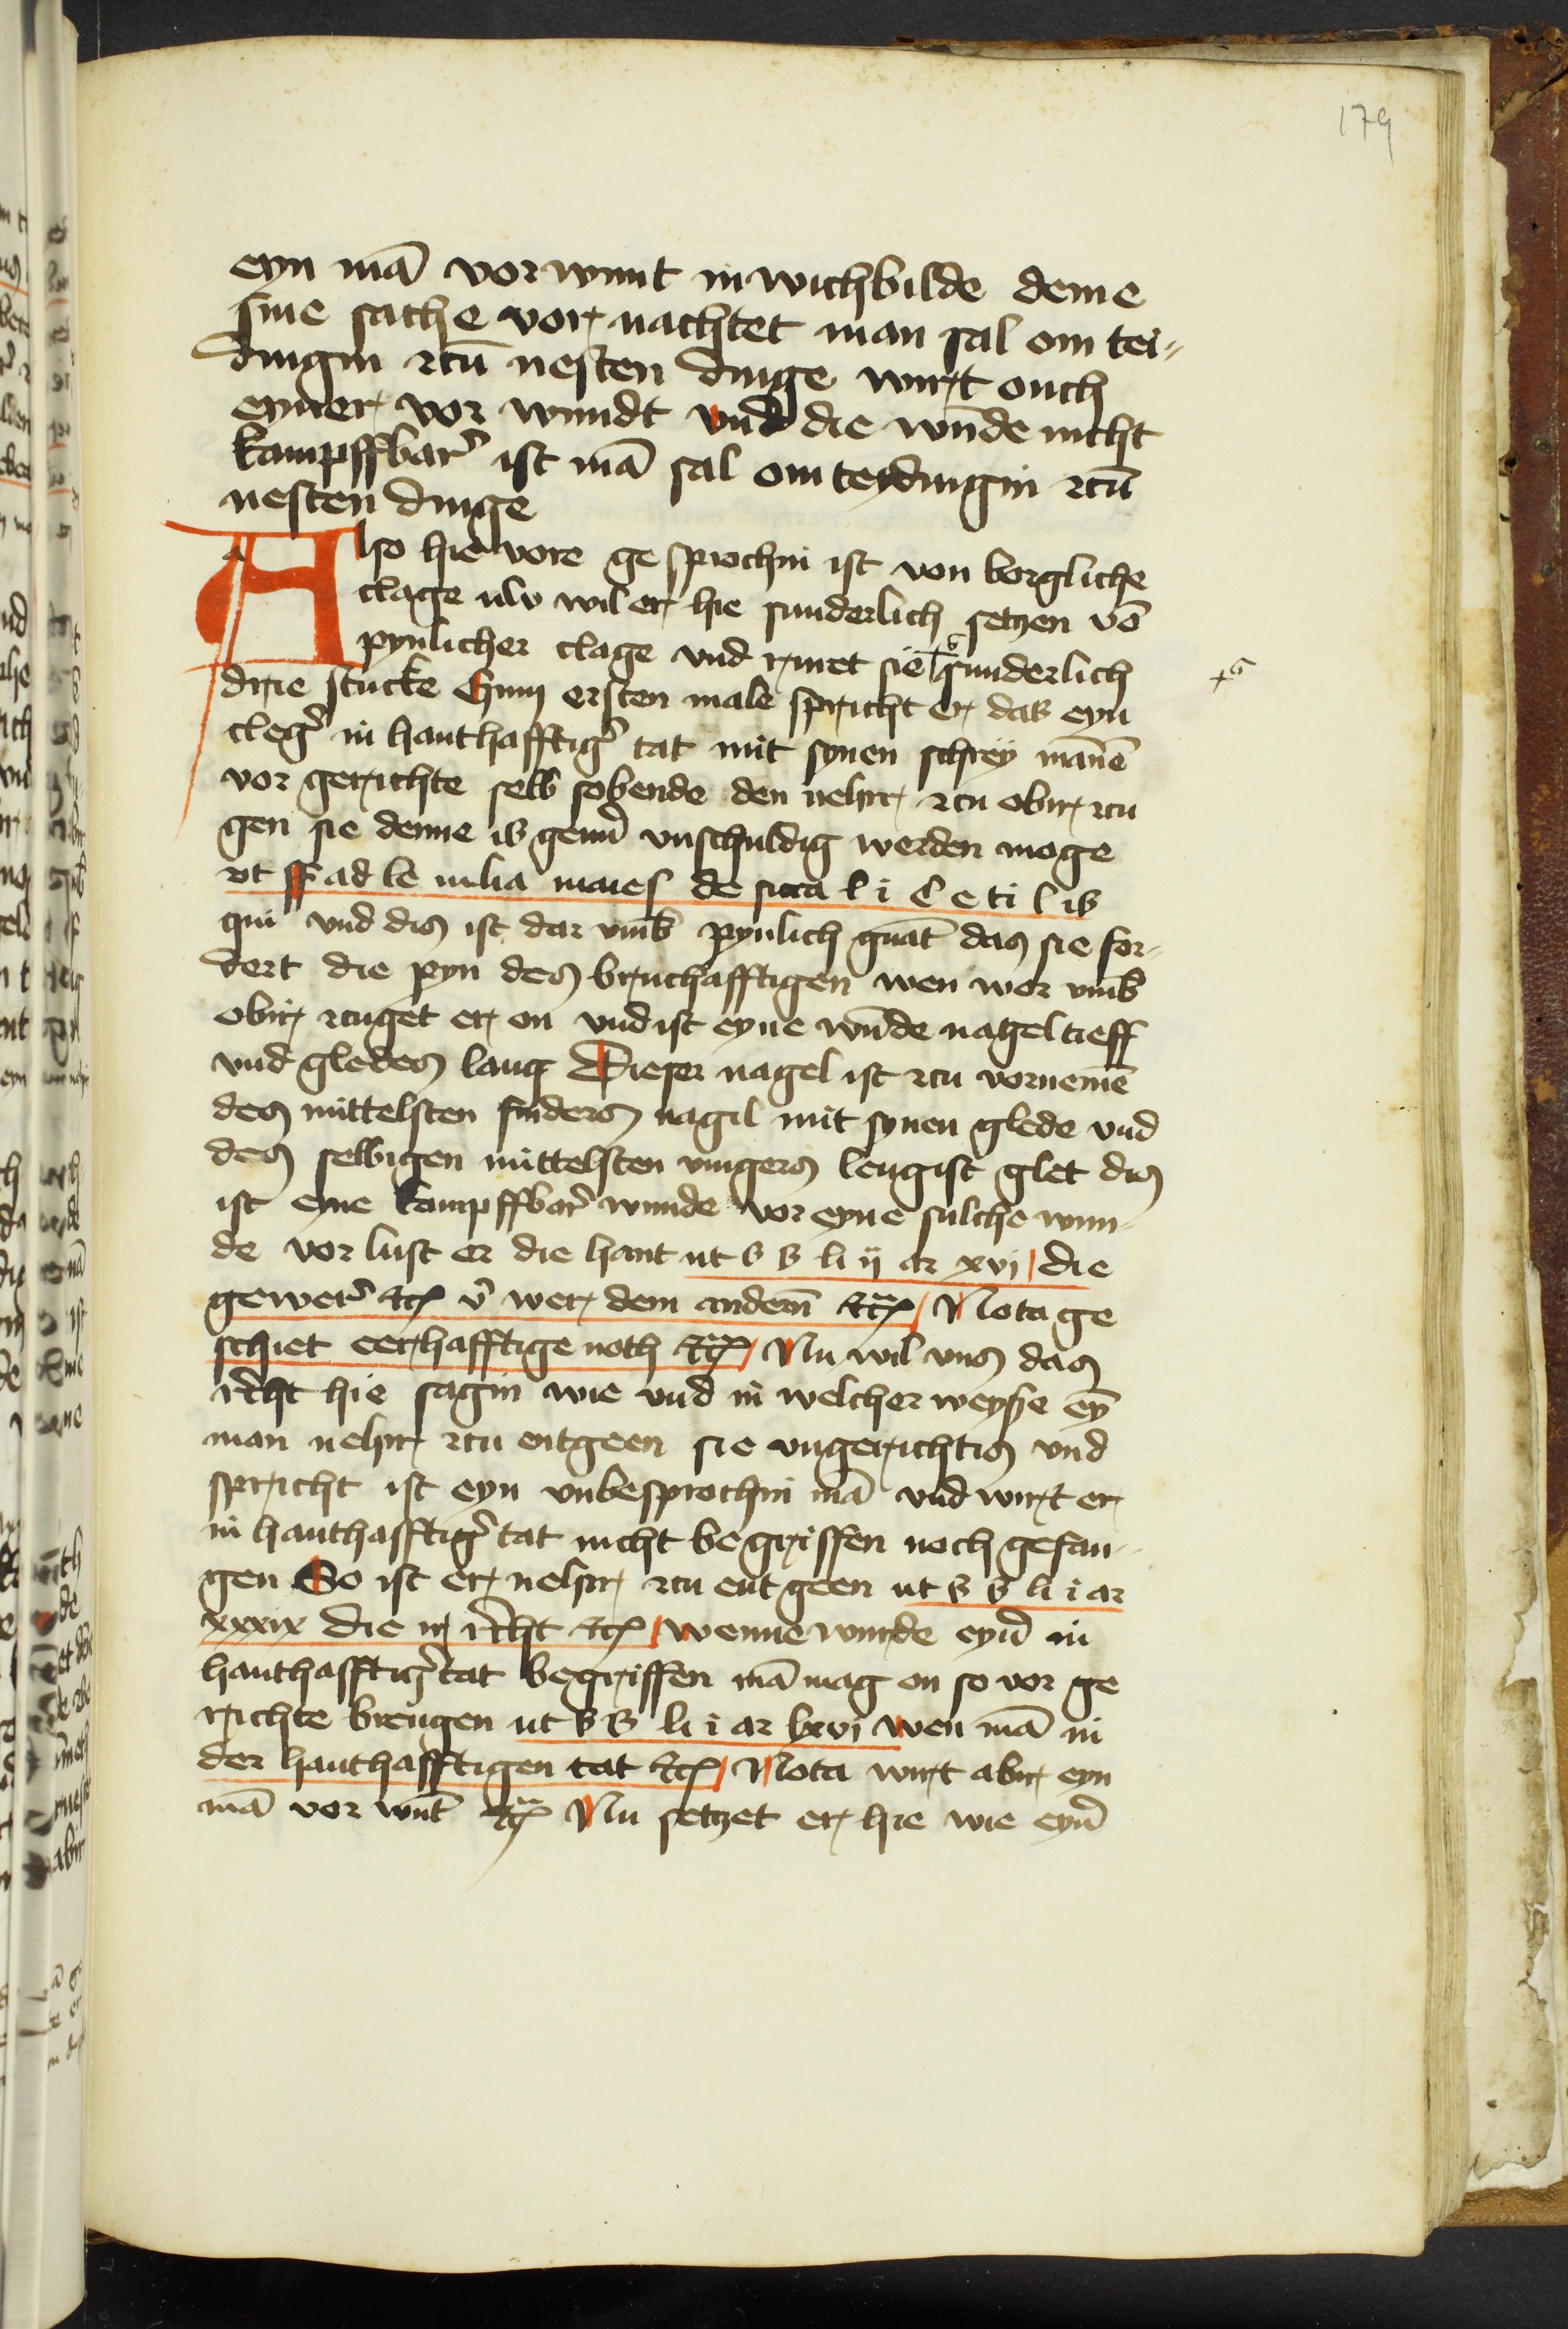 179
eyn mā vorwunt in wichbilde deme
sine sache vor nachtet man sal om tei-
dingin zcū nesten dinge wirt ouch
eyner vor wundt vnd die wūde nicht
kampffbar̉ ist mā sal om teydingin zcū
nesten dinge
Also hie vore ge sprochin ist von borgliche
clage nw wil er hie sunderlich setzen vō
pynlicher clage vnd ruret sie sunderlich
drie stucke Czum ersten male spricht er das eyn
cleg̉ in hanthafftig̉ tat mit synen schrey mānē
vor gerichte selb sobende den nehir zcu obir zcu
gen sie denne is genn̉ vnschuldig werden moge
vt ff ad le iulia maies de sicca l i C e ti l is
qui vnd dis ist dar vmb pynlich gnāt das sie for-
dert die pyn des bruchafftigen wen wor vmb
obir zcuget er on vnd ist eyne wūde nagel tieff
vnd gledes lang Dieser nagel ist zcu vornemē
des mittelsten finders nagil mit synen glede vnd
des selbigen mittelsten vingers lengist glet dis
ist eyne kampffbar̉ wunde vor eyne sulche wun-
de vor lust er die hant ut s s li ij ar xvj die
gewer̉ etc v̉ wer dem andern̄ etc Nota ge
schiet eerhafftige noth etc Nu wil vns das
r̉cht hie sagin wie vnd in welcher weyse eȳ
man nehir zcu entgeen sie vngerichtis vnd
spricht ist eyn vnbesprochin mā vnd wirt er
in hanthafftig̉ tat nicht begriffen noch gefan-
gen So ist er nehir zcu ent geen ut s s li i ar
xxxix die ir r̉cht etc wenne wurde eyn̉ in
hanthafftig̉ tat begriffen mā mag on so vor ge
richte brengen ut s s li i ar lxvj wen mā in
der hanthafftigen tat etc Nota wirt abir eyn
mā vor wūt etc Nu setzet er hie wie eyn̉